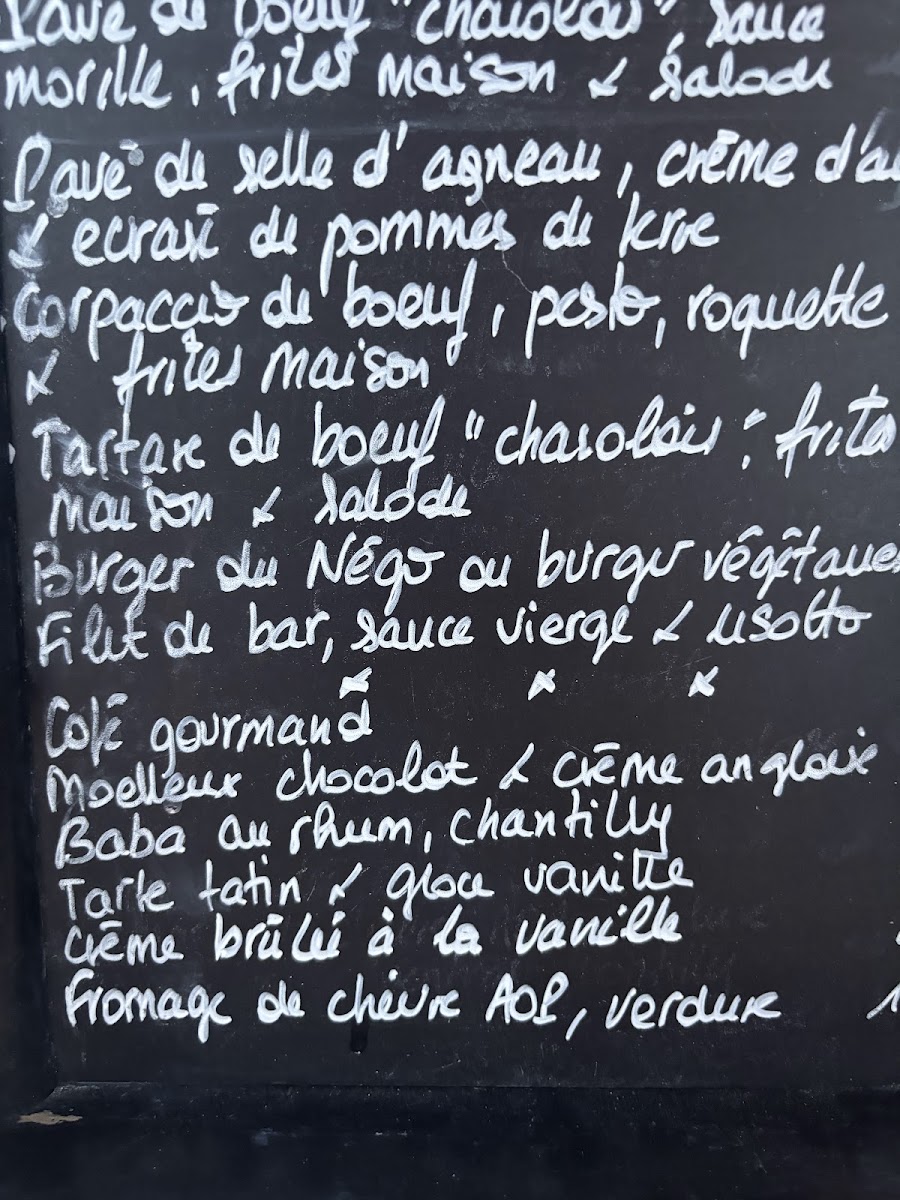 Pavé de boeuf "charolais", sauce
morille, frites maison & salade
Pavé de selle d'agneau, crème d'a
& ecrasé de pommes de terre
Carpaccio de boeuf, pesto, roquette
& frites maison
Tartare de boeuf "charolais", frites
maison & salade
Burger du Négo ou burger végétarie
Filet de bar, sauce vierge & risotto
x x x
Café gourmand
Moelleux chocolat & crème anglaise
Baba au rhum, chantilly
Tarte tatin & glace vanille
Crème brûlée à la vanille
Fromage de chèvre AOP, verdure